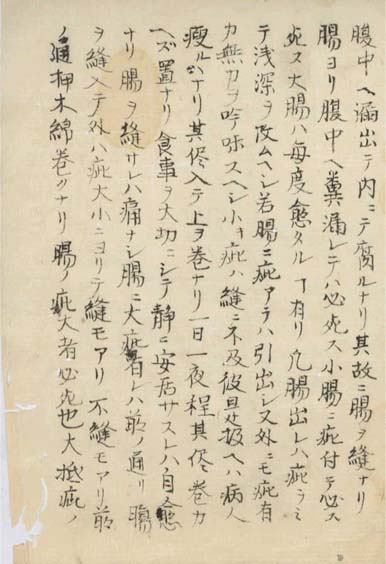 腹中ヘ漏出テ内ニテ腐ルナリ其故ニ腸ヲ縫ナリ
腸ヨリ腹中ヘ糞漏レテハ必死ス小腸ニ疵付テ必ス
死ス大腸ハ毎度愈タルヿ有リ凡腸出レハ疵ラミ
テ浅深ヲ改ムヘシ若腸ニ疵アラハ引出し又外ニモ疵有
カ無カヲ吟味スヘシ小キ疵ハ縫ニ不及彼是扱ヘハ病人
瘦ルナリ其侭入テ上ヲ巻ナリ一日一夜程其侭巻カ
ヘズ置ナリ食事ヲ大切ニシテ静ニ安居サスレハ自愈
ナリ腸ヲ縫サレハ痛ナシ腸ニ大疵有レハ前ノ通リ腸
ヲ縫入テ外ハ疵大小ニヨリテ縫モアリ不縫モアリ前
ノ通押木綿巻クナリ腸ノ疵大者必死也大抵疵ノ